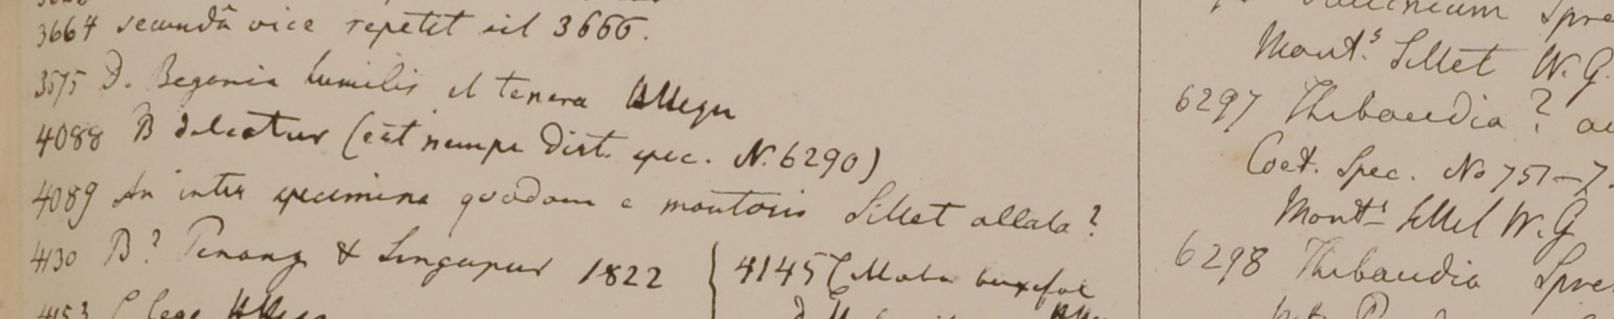 3664 secundâ vice repetit sil 3666.
3575 D. Begonia humilis et tenera
4088 B deleatur (est nempe dist. spec. N. 6290)
4089 An inter specimina quadam e montosis Sillet allata?
4130 B? Penang & Singapur 1822
4145
4153 C lege
Spre
Mont.s Sillet W. G.
6297 Thibaudia?
Coet. Spec. No 757-7.
Mont.s Sillet W. G
6298 Thibaudia Spre